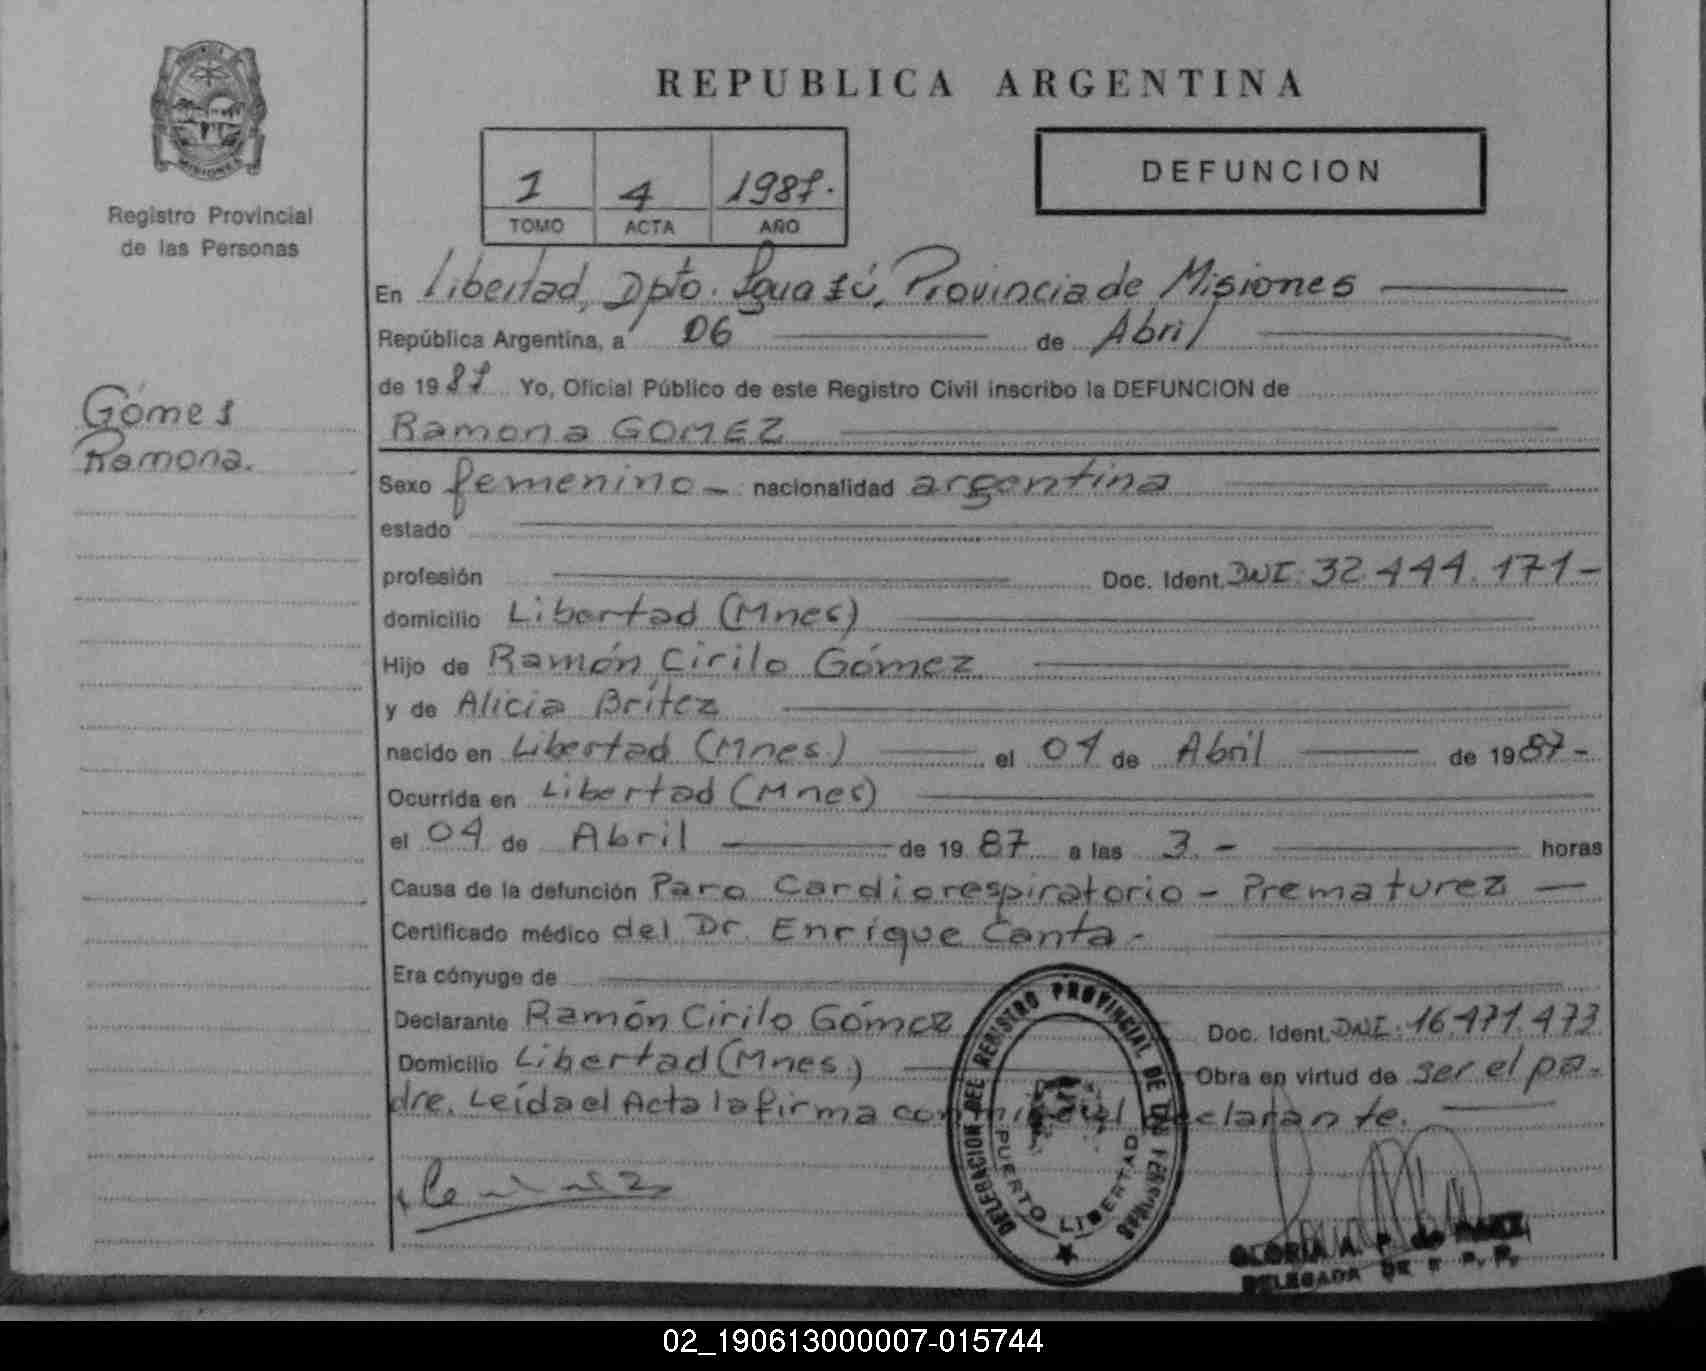 REPUBLICA ARGENTINA
MISIONES
Registro Provincial
de las Personas
1 4 1987.
TOMO ACTA AÑO
DEFUNCION
En Libertad, Dpto. Iguazú, Provincia de Misiones
República Argentina, a 06 de Abril
de 1987 Yo, Oficial Público de este Registro Civil inscribo la DEFUNCION de
Gómez
Ramona.
Ramona GOMEZ
Sexo femenino - nacionalidad argentina
estado
profesión Doc. Ident. DNI: 32.444.171-
domicilio Libertad (Mnes)
Hijo de Ramón Cirilo Gómez
y de Alicia Brítez
nacido en Libertad (Mnes.) el 04 de Abril de 1987-
Ocurrida en Libertad (Mnes)
el 04 de Abril de 1987 a las 3.- horas
Causa de la defunción Paro Cardiorespiratorio - Prematurez
Certificado médico del Dr. Enrique Canta-
Era cónyuge de
Declarante Ramón Cirilo Gómez Doc. Ident. DNI: 16.471.473
Domicilio Libertad (Mnes.) Obra en virtud de ser el pa-
dre. Leída el Acta la firma conmigo el declarante.
DELEGACION DEL REGISTRO PROVINCIAL DE LAS PERSONAS
PUERTO LIBERTAD
GLORIA A. P. de
DELEGADA DE R. P. P.
02_190613000007-015744